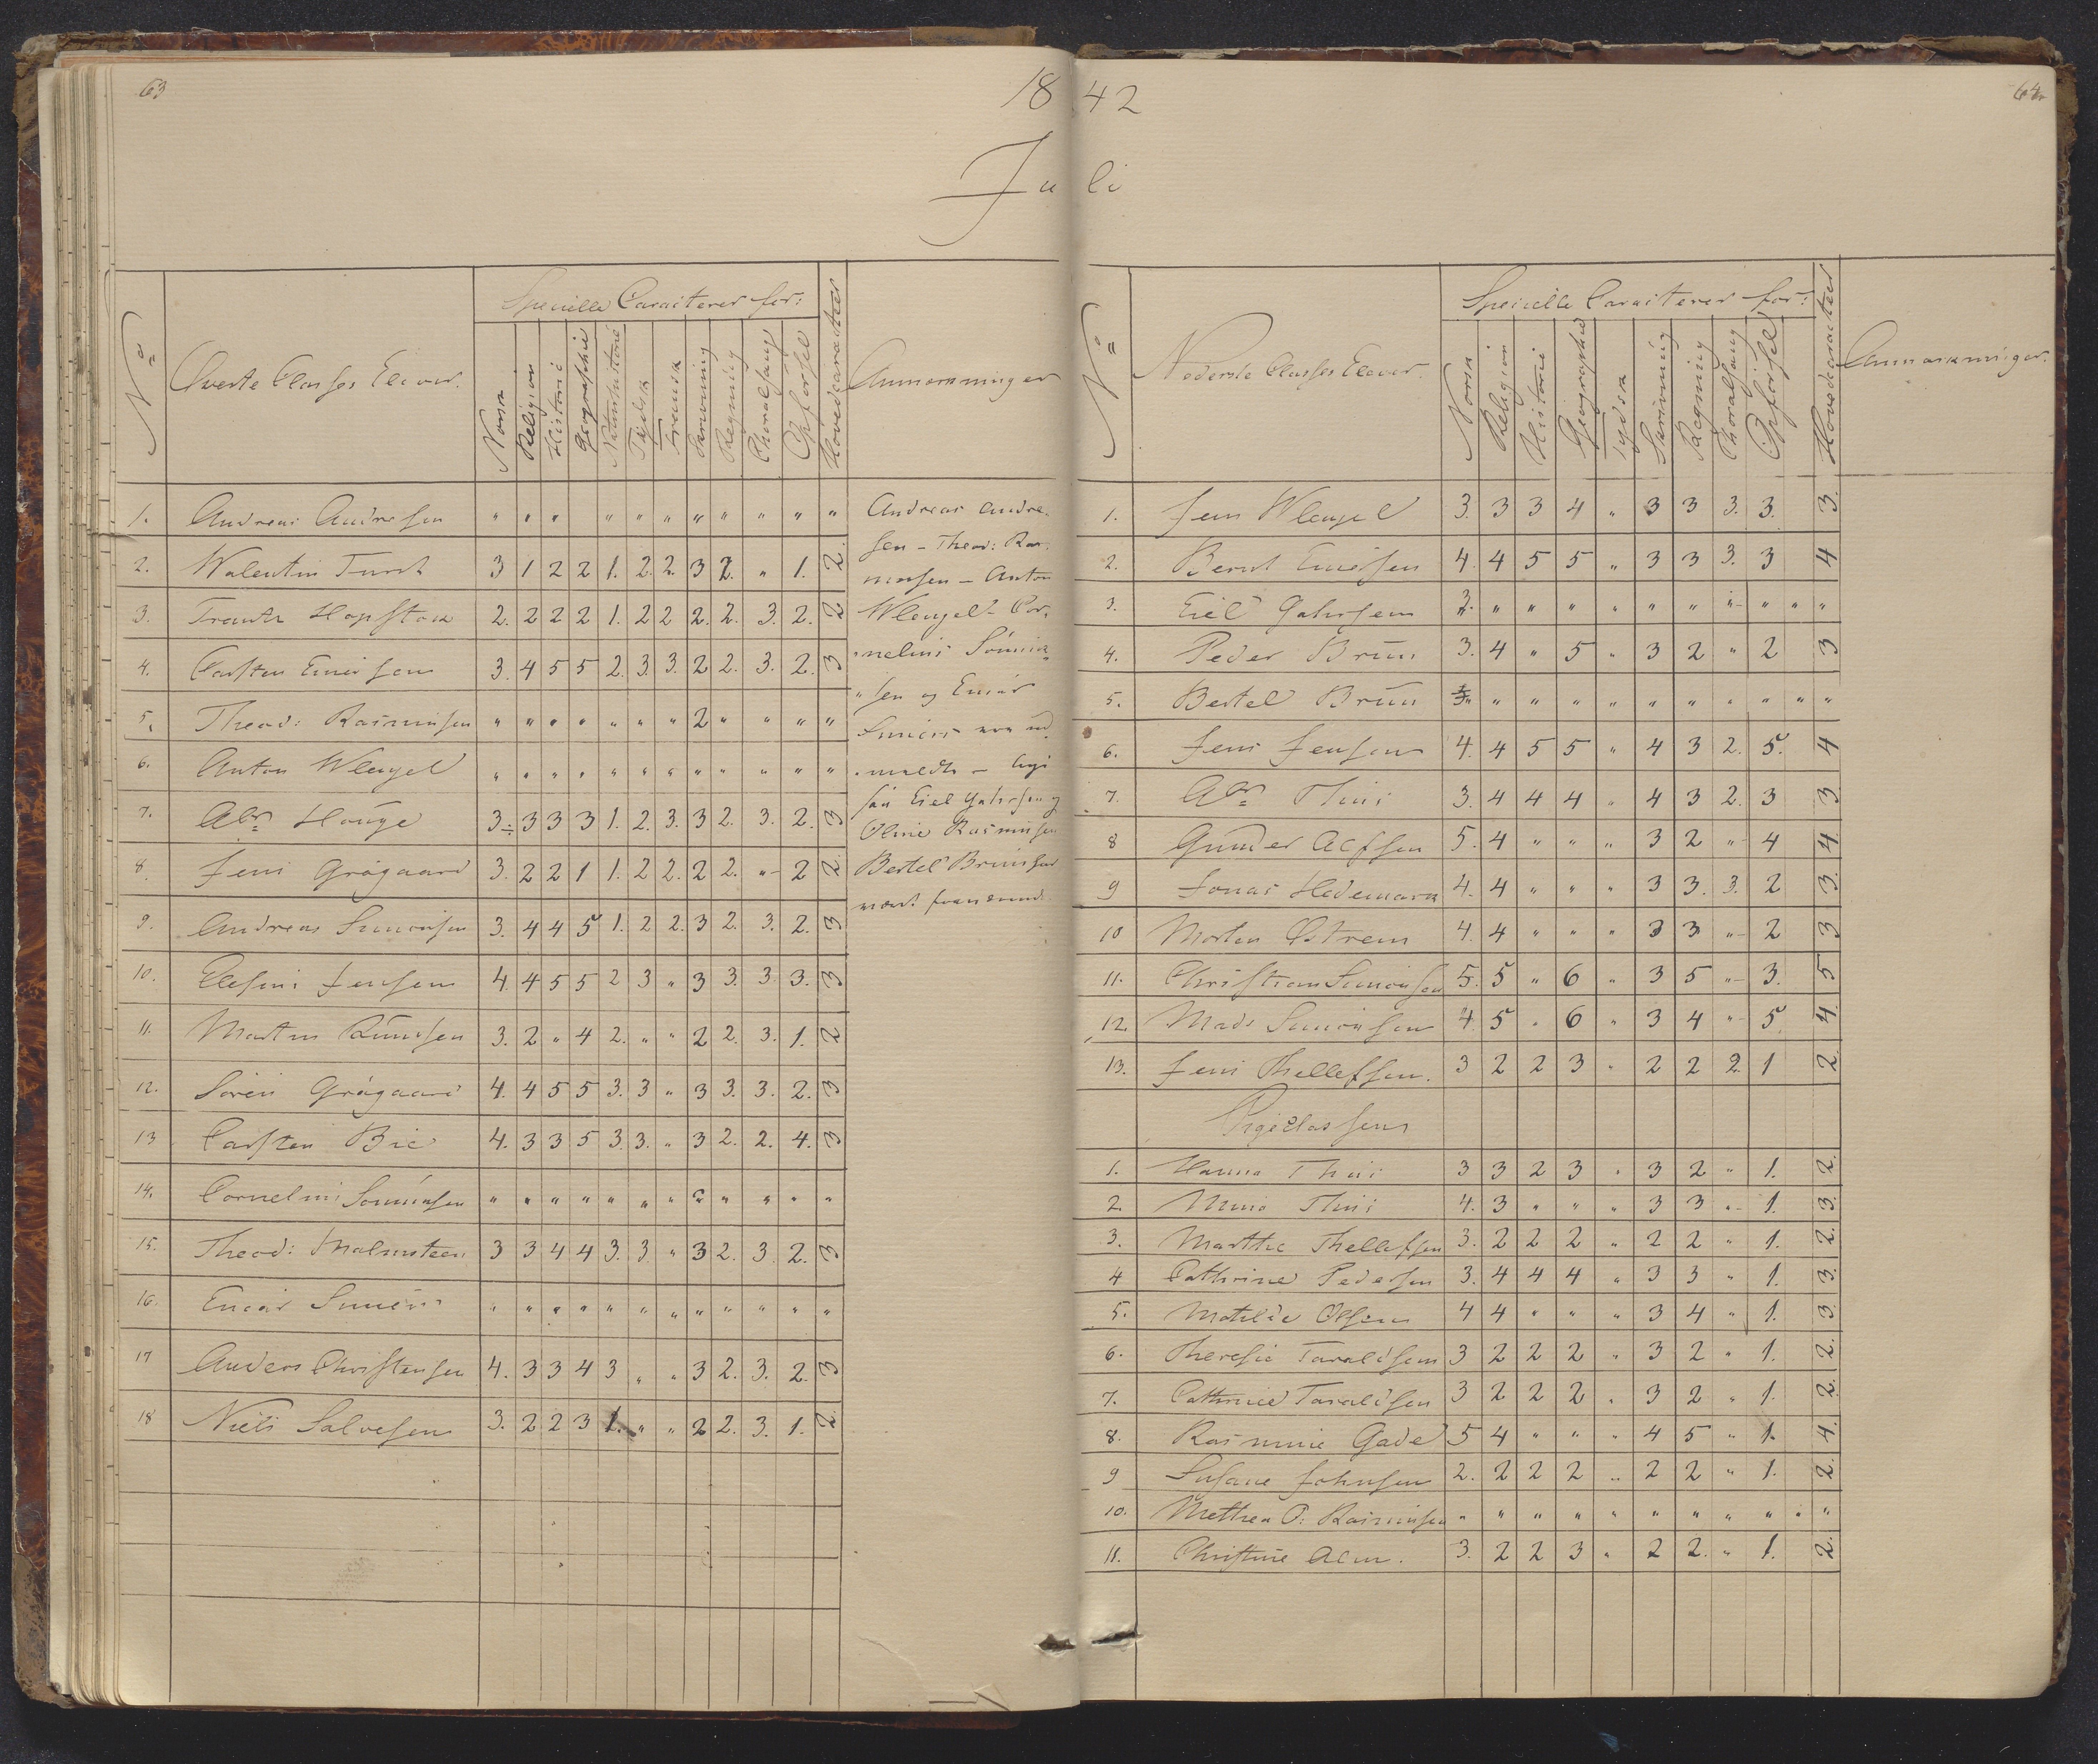 63
1842
64
Juli
No
Øverste Classes Elever.
Specielle Caracterer for:
Norsk
Religion
Historie
Geographie
Naturhistorie
Tydsk
Fransk
Skrivning
Regning
Choralsang
Opførsel
Hovedcaracter
Anmærkninger
1. Andreas Andresen " " " " " " " " " " "
2. Walentin Tursh 3 1 2 2 1. 2. 2. 3 2. " 1. 2.
3. Frantz Hopstock 2. 2 2 2 1. 2 2 2. 2. 3. 2. 2
4. Carsten Enersen 3. 4 5 5 2. 3. 3. 2 2. 3. 2. 3
5. Theod: Rasmusen " " " " " " " 2 " " " "
6. Anton Wleugel " " " " " " " " " " " "
7. Abr. Houge 3÷ 3 3 3 1. 2. 3. 3 2. 3. 2. 3
8. Jens Grøgaard 3. 2 2 1 1. 2 2. 2 2. " 2 2.
9. Andreas Simonsen 3. 4 4 5 1. 2 2. 3 2. 3. 2. 3
10. Ellefius Jensen 4. 4 5 5 2 3 " 3 3. 3. 3. 3
11. Martin Knudsen 3. 2 " 4 2. " " 2 2. 3. 1. 2
12. Søren Grøgaard 4. 4 5 5 3. 3 " 3 3. 3. 2. 3
13 Carsten Bie 4. 3 3 5 3. 3. " 3 2. 2. 4. 3
14. Cornelius Sønnicksen " " " " " " " " " " " "
15. Theod: Malmsteen 3 3 4 4 3. 3. " 3 2. 3. 2. 3
16. Einar Simers " " " " " " " " " " " "
17 Anders Christensen 4. 3 3 4 3 " " 3 2. 3. 2. 3
18 Niels Salvesen 3. 2 2 3 1. " " 2 2. 3. 1. 2.
Andreas Andre-
sen – Theod: Ras-
musen – Anton
Wleugel – Cor-
nelius Sønnick-
sen og Einar
Simers ere ud-
meldte – lige
saa Eiel Gahrsen og
Oline Rasmusen
Bertel Bruun har
været fraværende.
No
Nederste Classes Elever.
Specielle Caracterer for:
Norsk
Religion
Historie
Geographie
Tydsk
Skrivning
Regning
Choralsang
Opførsel
Hovedcaracter
Anmærkninger.
1. Jens Wleugel 3. 3 3 4 " 3 3 3. 3. 3.
2. Bernt Enersen 4. 4 5 5 " 3 3 3. 3 4
3. Eiel Gahrsen " " " " " " " " " "
4. Peder Bruun 3. 4 " 5 " 3 2 " 2 3
5. Bertel Bruun " " " " " " " " " "
6. Jens Jensen 4. 4 5 5 " 4 3 2. 5. 4
7. Abr. Thiis 3. 4 4 4 " 4 3 2. 3 3
8 Gunder Alfsen 5. 4 " " " 3 2 " 4 4.
9 Jonas Hedemark 4. 4 " " " 3 3. 3. 2 3.
10 Morten Østrem 4. 4 " " " 3 3 " 2 3
11. Christian Simonsen 5. 5 " 6 " 3 5 " 3. 5
12. Mads Simonsen 4. 5 " 6 " 3 4 " 5 4.
13. Jens Thellefsen. 3 2 2 3 " 2 2 2. 1 2.
Pigeclassen
1. Hanna Thiis 3 3 2 3 " 3 2 " 1. 2.
2. Minna Thiis 4. 3 " " " 3 3 " 1. 3.
3. Marthe Thellefsen 3. 2 2 2 " 2 2 " 1. 2.
4 Cathrine Pedersen 3. 4 4 4 " 3 3 " 1. 3.
5. Matilde Olsen 4 4 " " " 3 4 " 1. 3.
6. Theresie Taraldsen 3 2 2 2 " 3 2 " 1. 2.
7. Cathrine Taraldsen 3 2 2 2 " 3 2 " 1. 2.
8. Rasmine Gade 5 4 " " " 4 5 " 1. 4.
9 Susane Johnsen 2. 2 2 2 " 2 2 " 1. 2.
10. Methea O: Rasmusen " " " " " " " " " "
11. Christine Alm. 3. 2 2 3 " 2 2. " 1. 2.